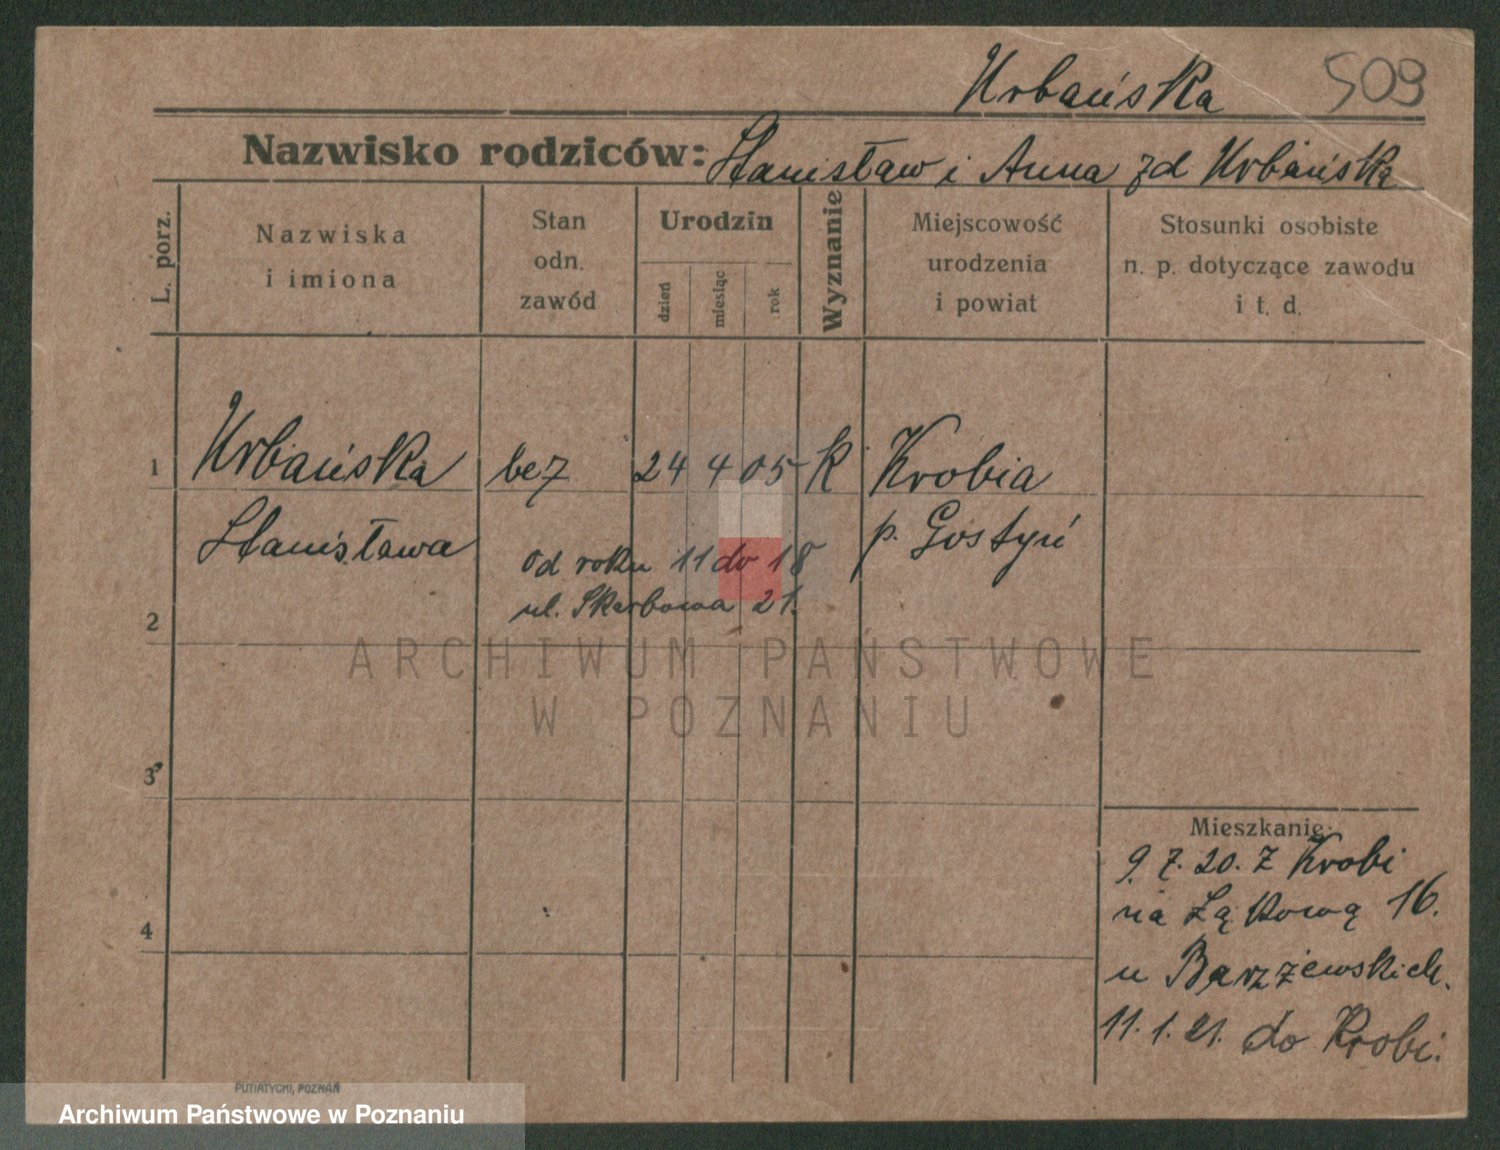 Urbańska 509
Nazwisko rodziców: Stanisław i Anna zd Urbańska
L. porz.
Nazwiska
i imiona
Stan
odn.
zawód
Urodzin
dzień
miesiąc
rok
Wyznanie
Miejscowość
urodzenia
i powiat
Stosunki osobiste
n. p. dotyczące zawodu
i t. d.
1 Urbańska bez 24 4 05 k Krobia
Stanisława p. Gostyń
od roku 11 do 18
ul. Skarbowa 21.
2
ARCHIWUM PAŃSTWOWE
W POZNANIU
3
4
Mieszkanie:
9.7.20. z Krobi
na Łąkową 16.
u Barzżewskich.
11.1.21. do Krobi.
PUTIATYCKI, POZNAŃ
Archiwum Państwowe w Poznaniu